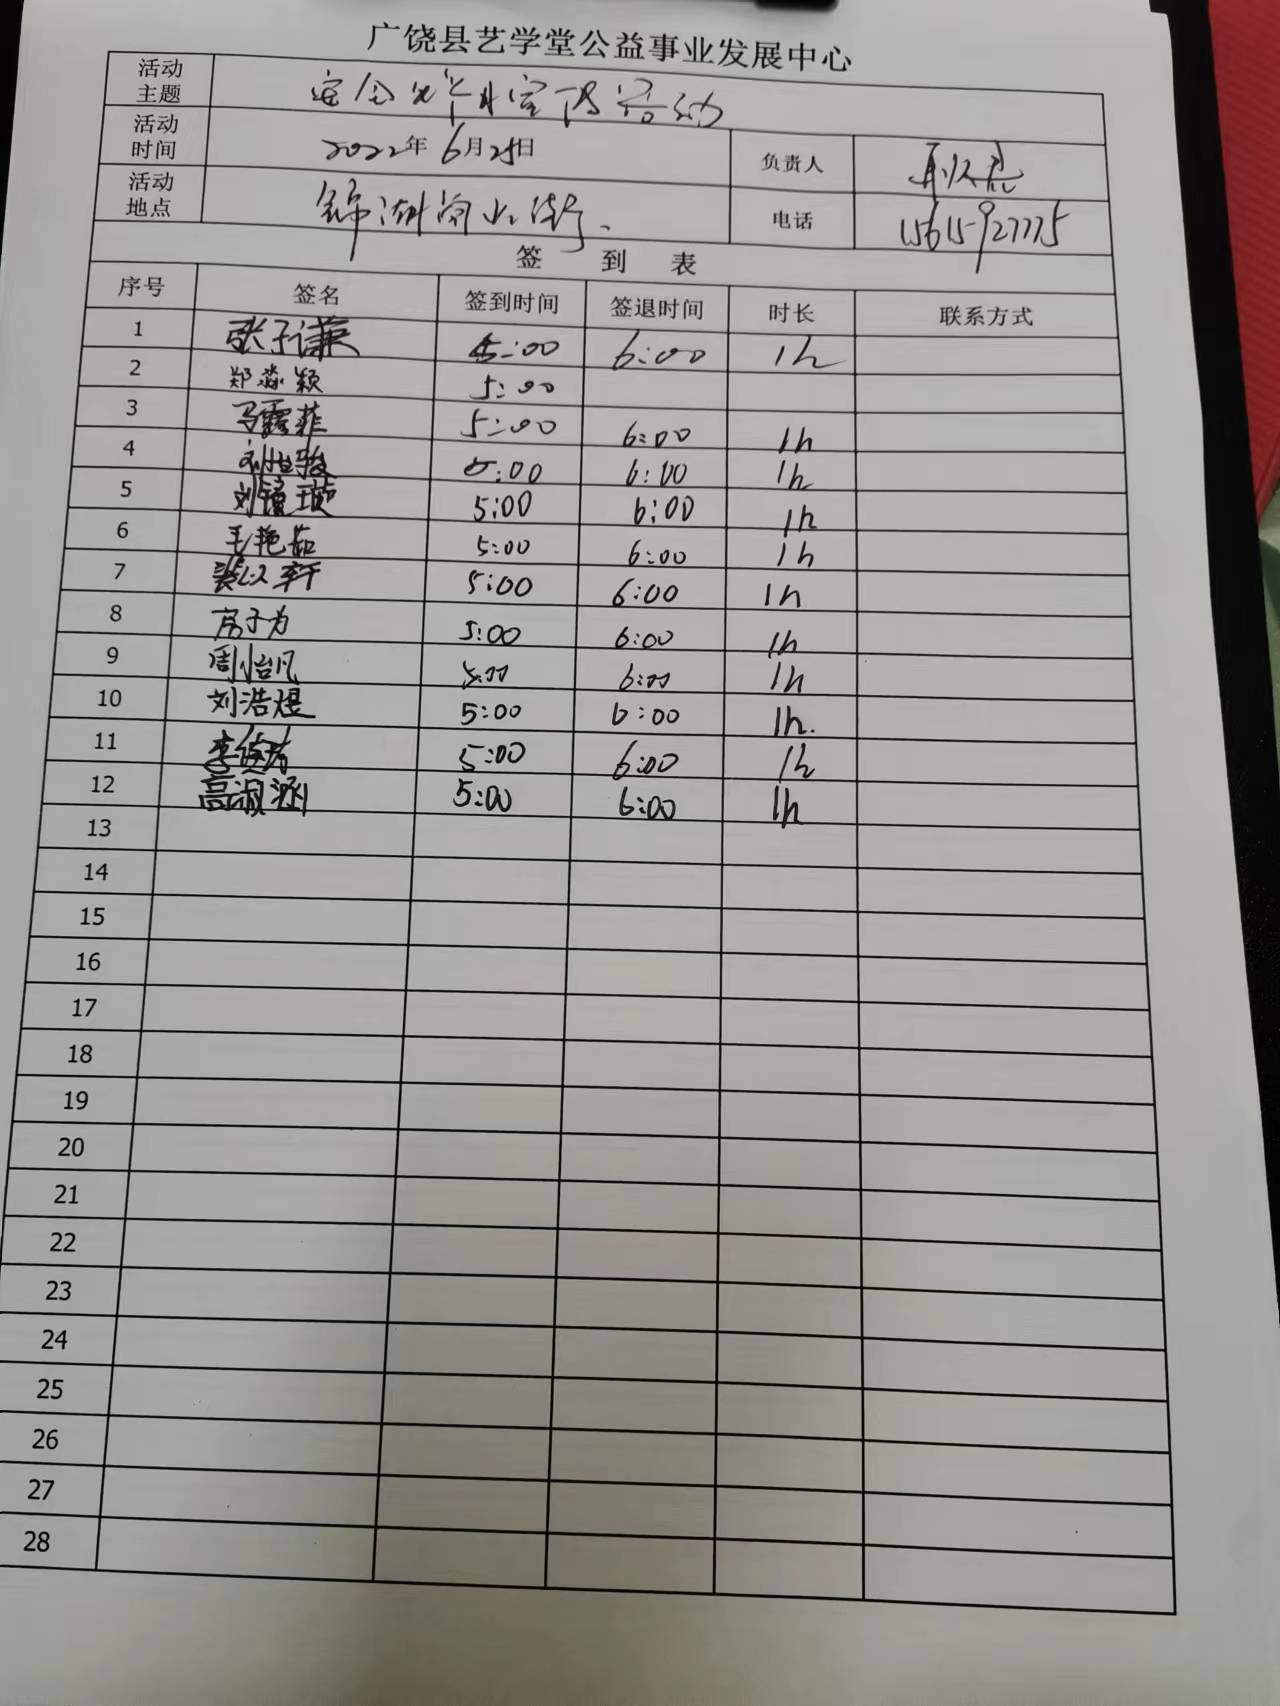 广饶县艺学堂公益事业发展中心
活动主题 安全生产月宣传活动
活动时间 2022年6月25日 负责人
活动地点 锦湖商业街、 电话
签到表
序号 签名 签到时间 签退时间 时长 联系方式
1 张子谦 5:00 6:00 1h
2 郑淼颖 5:00
3 马露菲 5:00 6:00 1h
4 5:00 6:00 1h
5 刘镱璇 5:00 6:00 1h
6 毛艳茹 5:00 6:00 1h
7 5:00 6:00 1h
8 房子为 5:00 6:00 1h
9 周怡凡 5:00 6:00 1h
10 刘浩煜 5:00 6:00 1h.
11 5:00 6:00 1h
12 高淑涵 5:00 6:00 1h
13
14
15
16
17
18
19
20
21
22
23
24
25
26
27
28